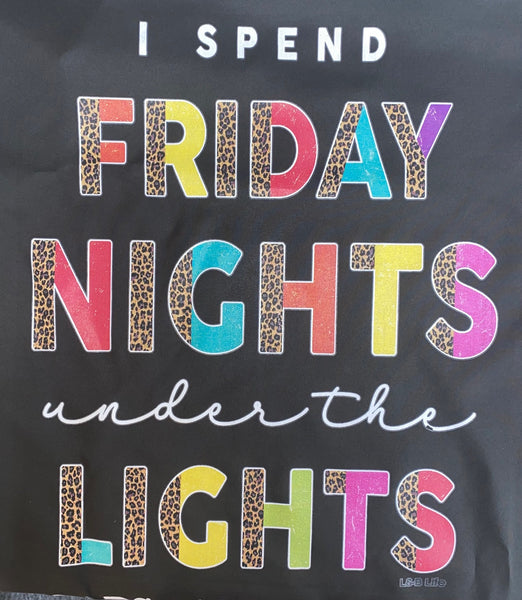 I SPEND
FRIDAY
NIGHTS
under the
LIGHTS